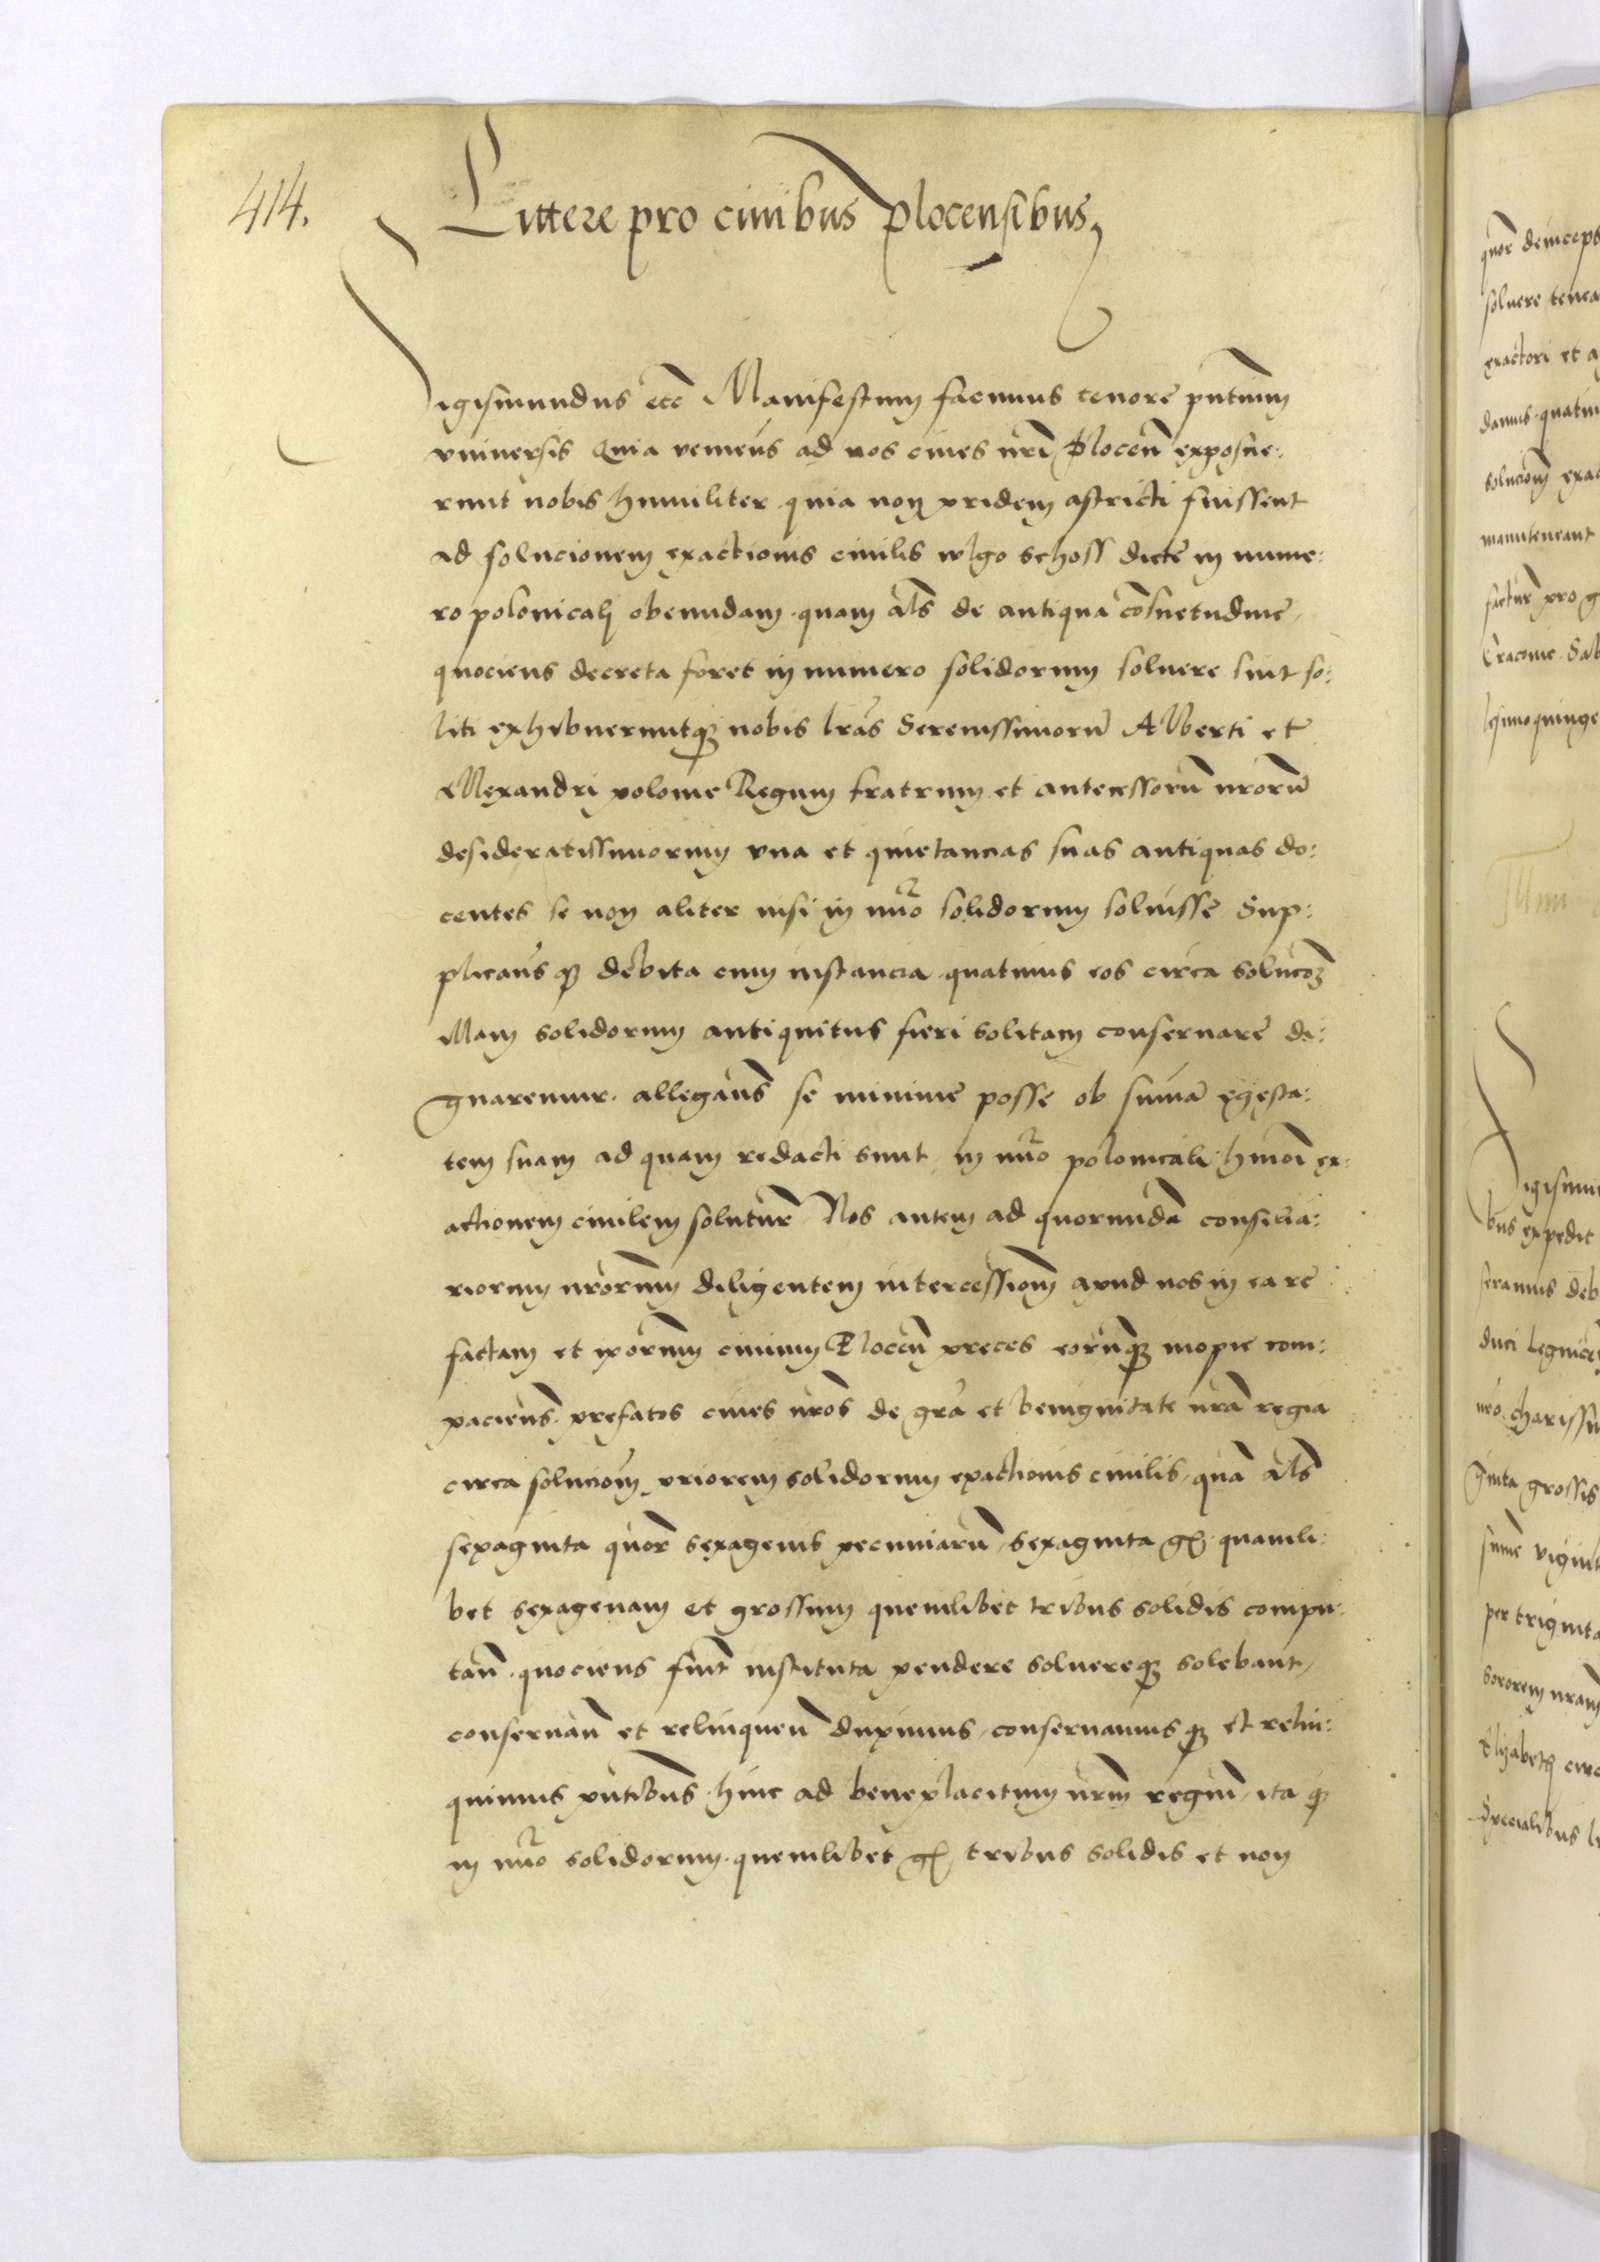 414.
Littere pro civibus plocensibus
Sigismundus etc Manifestum facimus tenore pntium
vniversis Quia venieñs ad nos cives nri Plocen̄ exposue:
runt nobis humiliter quia non pridem astricti fuissent
ad solucionem exactionis civilis wlgo schoss dicte in nume:
ro polonicali obeundam quam als de antiqua cosuetudine
quociens decreta foret in numero solidorum solvere sint so:
liti exhibueruntq3 nobis lras Serenissimorū Alberti et
Allexandri polonie Regum fratrum et antecessorū nrorū
desideratissimorum vna et quietancias suas antiquas do:
centes se non aliter nisi in nũo solidorum solvisse Sup:
plicañs q3 debita cum instancia quatinus eos circa soluco3
illam solidorum antiquitus fieri solitam conservare di:
gnaremur. allegañs se minime posse ob sũma egesta:
tem suam ad quam redacti sunt in nũo polonicali hmoi ex:
actionem civilem soluturē Nos autem ad quorundā consilia:
riorum nrorum diligentem intercessionem apud nos in ea re
factam et iporum civium Plocen̄ preces eorūq3 inopie com:
pacieñs prefatos cives nros de gra et benignitate nra regia
circa soluciom priorem solidorum exactionis civilis, quā als
sexaginta quor sexagenis pecuniarū, sexaginta g quamli:
bet sexagenam et grossum quemlibet tribus solidis compu:
tan̄ quociens fuit instituta pendere solvereq3 solebant,
conservan̄ et relinquen̄ duximus, conservamus q3 et relin:
quimus pntibus hinc ad beneplacitum nrm regiū, ita q
in nũo solidorum quemlibet g tribus solidis et non
quor deinceps
solvere tenea
exactori et a
damus quatin
soluciom exac
manuteneant
factur pro g
Cracovie Sab
lesimoquinge
Sigismun
bus expedit
feramus deb
duci Legnicen
nro charissi
ginta grossis
sume vigint
per triginta
sororem nram
Elizabeth circ
Specialibus l